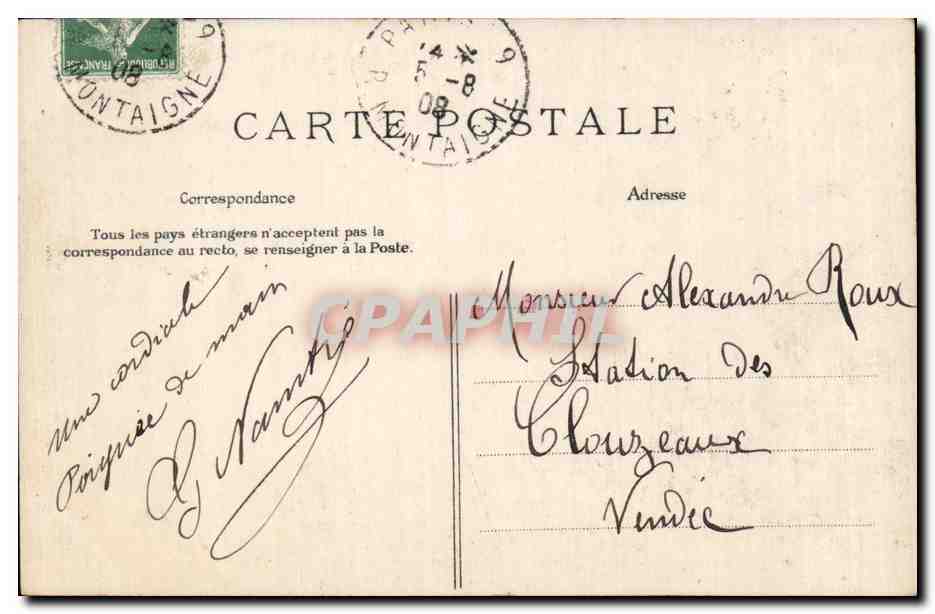 RÉPUBLIQUE FRANÇAISE
9
08
MONTAIGNE
PARIS 9
14
5 -8
08
R. MONTAIGNE
CARTE POSTALE
Correspondance
Adresse
Tous les pays étrangers n'acceptent pas la
correspondance au recto, se renseigner à la Poste.
Une cordiale
Poignée de main
CPAPHIL
Monsieur Alexandre Roux
Station des
Clouzeaux
Vendée